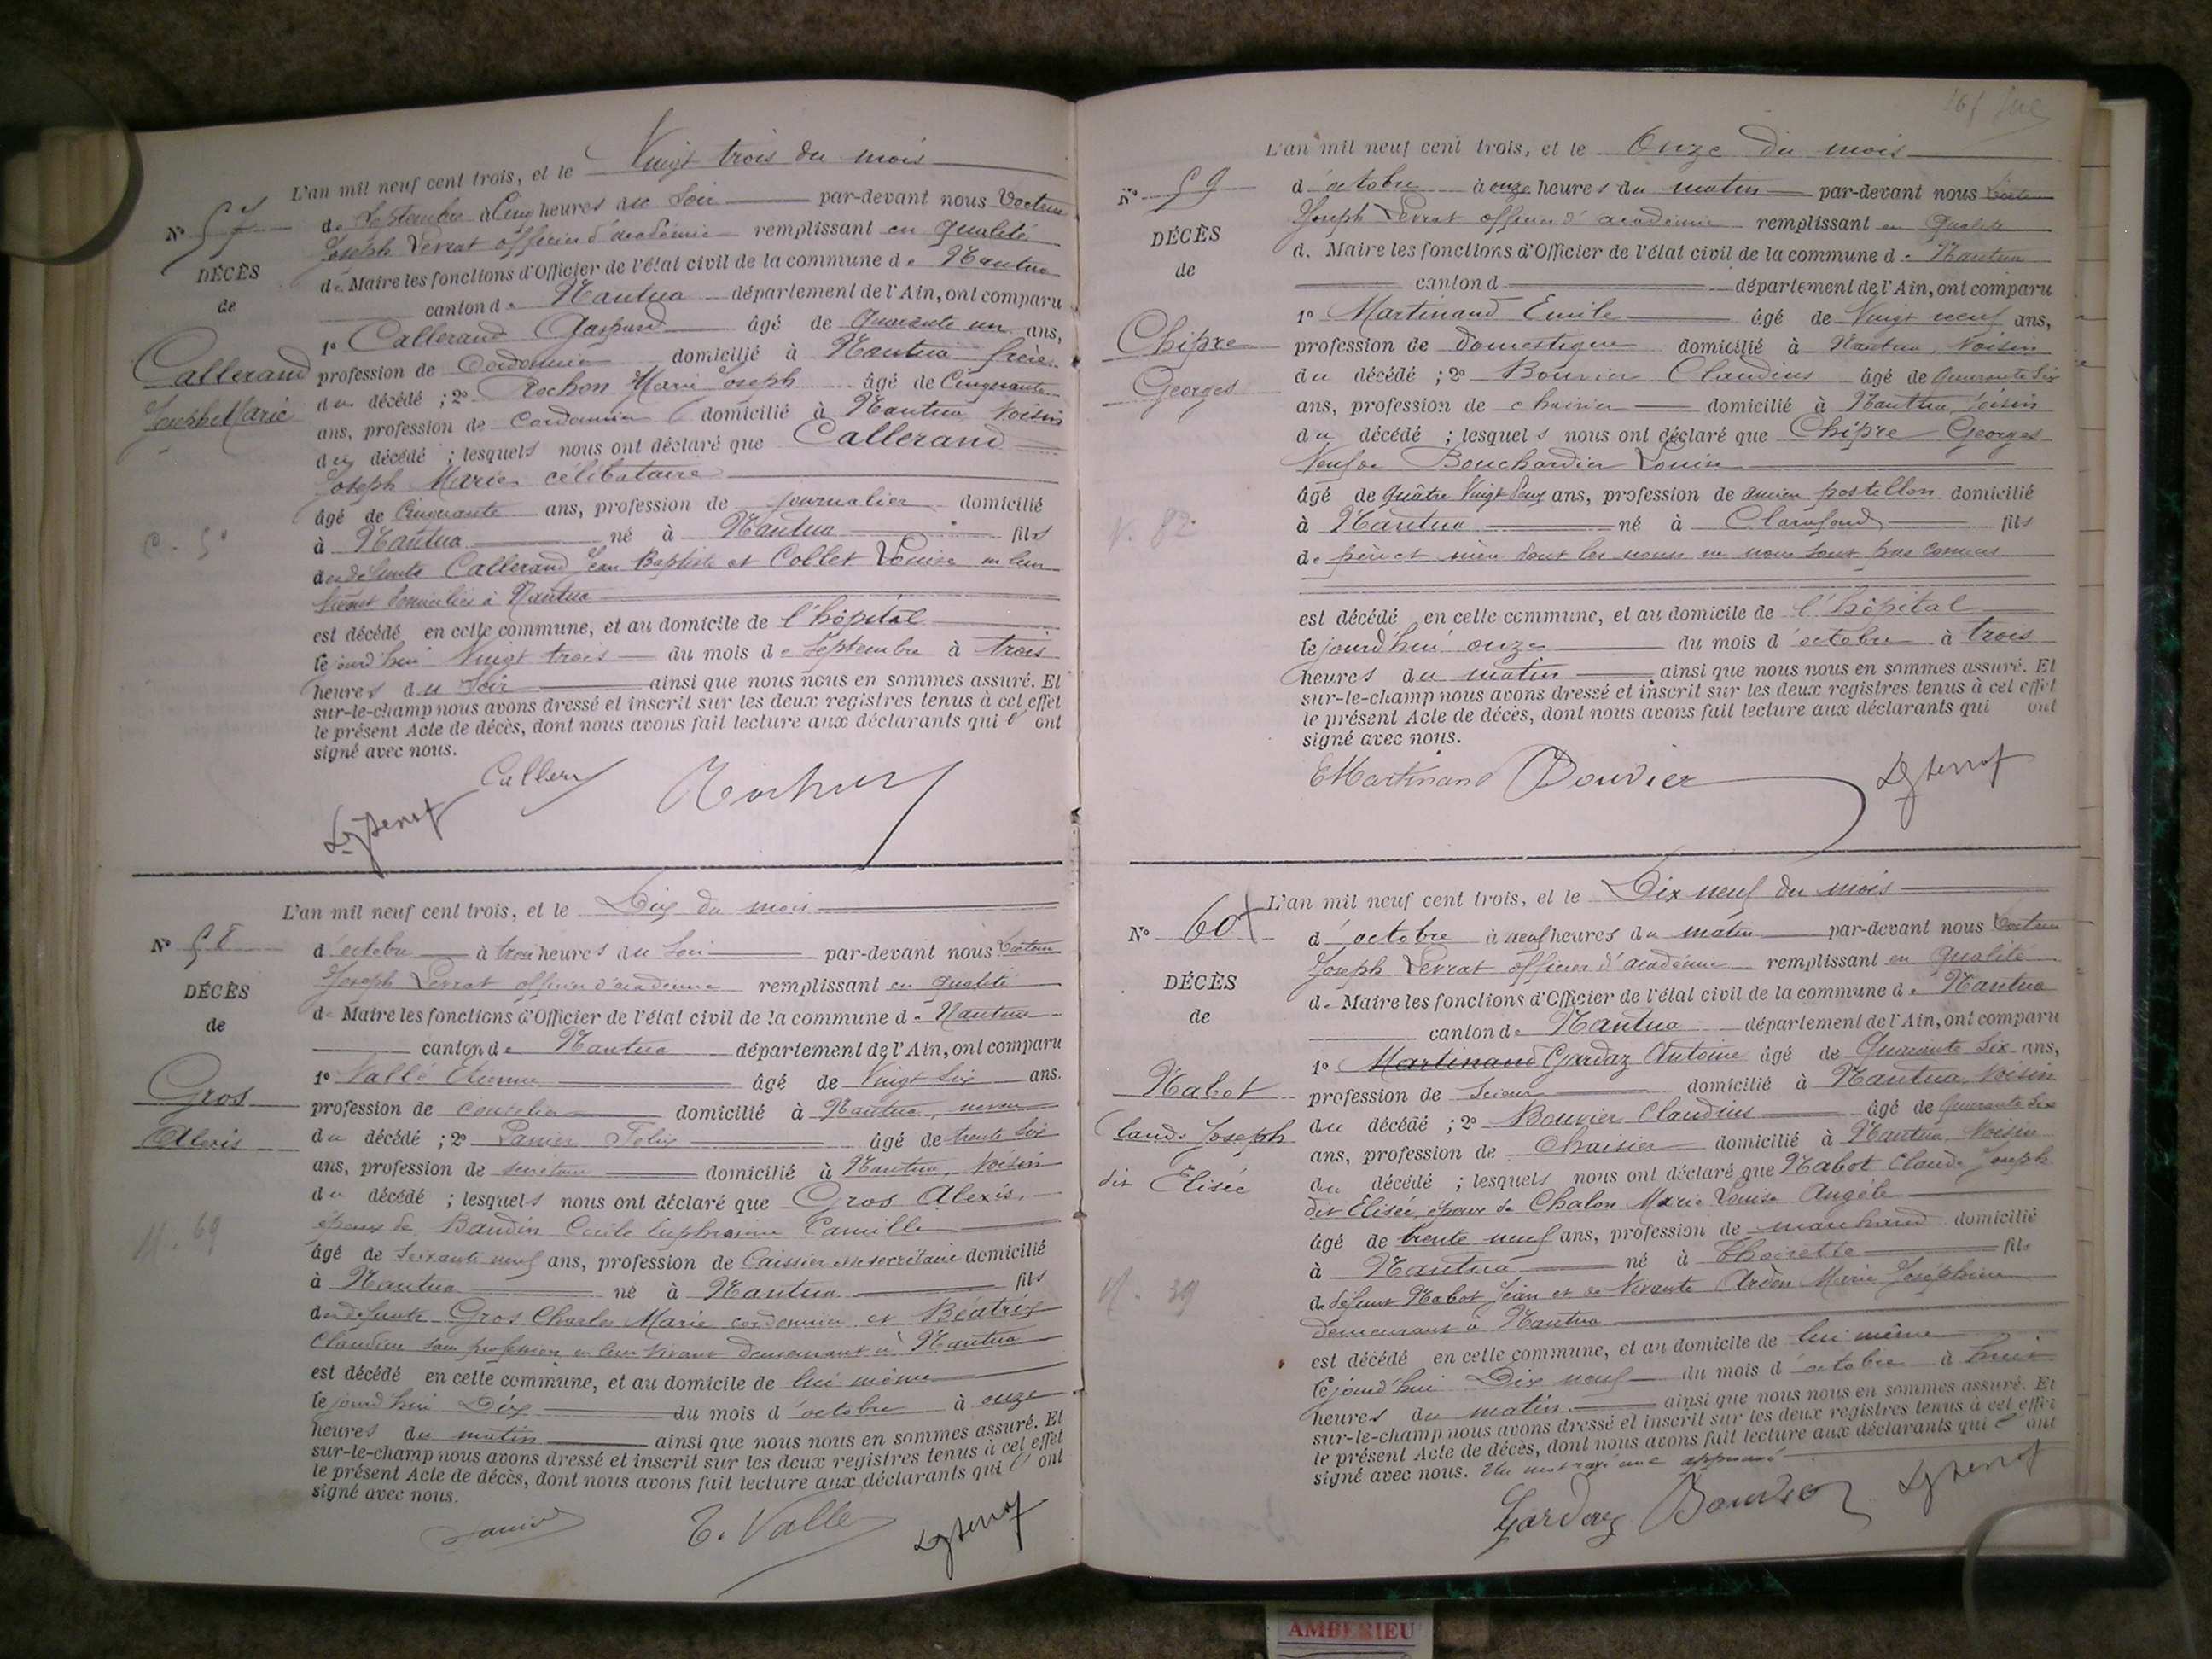 L'an mil neuf cent trois, et le Vingt trois du mois
N° 57
de Septembre à Cinq heures du Soir par-devant nous Docteur
Joseph Levrat officier d'académie remplissant en qualité
DÉCÈS
de Maire les fonctions d'Officier de l'état civil de la commune de Nantua
de
canton de Nantua département de l'Ain, ont comparu
1° Callerand Gaspard âgé de Quarante un ans,
Callerand
profession de Cordonnier domicilié à Nantua frère
Joseph Marie
du décédé ; 2° Rochon Marie Joseph âgé de Cinquante
ans, profession de Cordonnier domicilié à Nantua Voisin
du décédé ; lesquels nous ont déclaré que Callerand
Joseph Marie célibataire
âgé de Cinquante ans, profession de journalier domicilié
C. 50
à Nantua né à Nantua fils
des défunts Callerand Jean Baptiste et Collet Louise en leur
vivant domiciliés à Nantua
est décédé en cette commune, et au domicile de l'hôpital
cejourd'hui Vingt trois du mois de Septembre à trois
heures du Soir ainsi que nous nous en sommes assuré. Et
sur-le-champ nous avons dressé et inscrit sur les deux registres tenus à cet effet
le présent Acte de décès, dont nous avons fait lecture aux déclarants qui l'ont
signé avec nous.
L'an mil neuf cent trois, et le Dix du mois
N° 58
d'octobre à trois heures du Soir par-devant nous Docteur
Joseph Levrat officier d'académie remplissant en qualité
DÉCÈS
de Maire les fonctions d'Officier de l'état civil de la commune de Nantua
de
canton de Nantua département de l'Ain, ont comparu
1° Vallé Etienne âgé de Vingt Six ans.
Gros
profession de domicilié à Nantua, neveu
Alexis
du décédé ; 2° Felix âgé de trente Six
ans, profession de secrétaire domicilié à Nantua, Voisin
du décédé ; lesquels nous ont déclaré que Gros Alexis,
époux de Baudin Cécile Euphrasine Camille
M. 69
âgé de Soixante neuf ans, profession de Caissier secrétaire domicilié
à Nantua né à Nantua fils
des défunts Gros Charles Marie cordonnier et Béatrix
Claudine sans profession en leur vivant demeurant à Nantua
est décédé en cette commune, et au domicile de lui même
cejourd'hui Dix du mois d'octobre à onze
heures du matin ainsi que nous nous en sommes assuré. Et
sur-le-champ nous avons dressé et inscrit sur les deux registres tenus à cet effet
le présent Acte de décès, dont nous avons fait lecture aux déclarants qui l'ont
signé avec nous.
L'an mil neuf cent trois, et le Onze du mois
N° 59
d'octobre à onze heures du matin par-devant nous Docteur
Joseph Levrat officier d'académie remplissant en qualité
DÉCÈS
de Maire les fonctions d'Officier de l'état civil de la commune de Nantua
de
canton d département de l'Ain, ont comparu
1° Martinand Emile âgé de Vingt neuf ans,
Chipre
profession de domestique domicilié à Nantua, Voisin
Georges
du décédé ; 2° Bouvier Claudius âgé de Quarante Six
ans, profession de chaisier domicilié à Nantua, Voisin
du décédé ; lesquels nous ont déclaré que Chipre Georges
Veuf de Bouchardier Louise
âgé de Quatre Vingt deux ans, profession de ancien postillon domicilié
V. 82
à Nantua né à Clarafond fils
de père et mère dont les noms ne nous sont pas connus
est décédé en cette commune, et au domicile de l'hôpital
cejourd'hui onze du mois d'octobre à trois
heures du matin ainsi que nous nous en sommes assuré. Et
sur-le-champ nous avons dressé et inscrit sur les deux registres tenus à cet effet
le présent Acte de décès, dont nous avons fait lecture aux déclarants qui ont
signé avec nous.
EMartinand Bouvier
L'an mil neuf cent trois, et le Dix neuf du mois
N° 60
d'octobre à neuf heures du matin par-devant nous Docteur
Joseph Levrat officier d'académie remplissant en qualité
DÉCÈS
de Maire les fonctions d'Officier de l'état civil de la commune de Nantua
de
canton de Nantua département de l'Ain, ont comparu
1° Martinand Gardaz Antoine âgé de Quarante Six ans,
Nabot
profession de Scieur domicilié à Nantua, Voisin
Claude Joseph
du décédé ; 2° Bouvier Claudius âgé de Quarante Six
ans, profession de Chaisier domicilié à Nantua, Voisin
dit Elisée
du décédé ; lesquels nous ont déclaré que Nabot Claude Joseph
dit Elisée, époux de Chalon Marie Louise Angèle
âgé de trente neuf ans, profession de marchand domicilié
à Nantua né à Thoirette fils
M. 39
de défunt Nabot Jean et de Vivante Marie Joséphine
demeurant à Nantua
est décédé en cette commune, et au domicile de lui même
cejourd'hui Dix neuf du mois d'octobre à huit
heures du matin ainsi que nous nous en sommes assuré. Et
sur-le-champ nous avons dressé et inscrit sur les deux registres tenus à cet effet
le présent Acte de décès, dont nous avons fait lecture aux déclarants qui l'ont
signé avec nous. Un mot rayé approuvé
Gardaz Bouvier
AMBERIEU